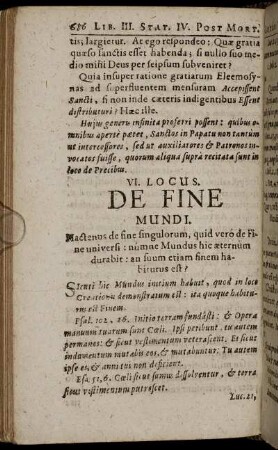 686 LIB. III. STAT. IV. POST MORT.
tis, largietur. At ego respondeo: Quæ gratia
quæso sanctis esset habenda; si nullo suo me-
dio misit Deus per seipsum subveniret?
Quia insuper ratione gratiarum Eleemosy-
nas ad superfluentem mensuram Accepissent
Sancti, si non inde cæteris indigentibus Essent
distributuri? Hæc ille.
Hujus generis infinita proferri possent: quibus
omnibus apertè patet, Sanctos in Papatu non tantum
ut intercessores, sed ut auxiliatores & Patronos in-
vocatos fuisse, quorum aliqua suprà recitata sunt in
loco de Precibus.
VI. LOCUS.
DE FINE
MUNDI.
Hactenus de fine singulorum, quid verò de Fi-
ne universi: númne Mundus hic æternùm
durabit: an suum etiam finem ha-
biturus est?
Sicuti hic Mundus initium habuit, quod in loco
Creationis demonstratum est: ita quoque habitu-
rus est Finem.
Psal. 102, 26. Initio terram fundásti: & Opera
manuum tuarum sunt Cœli. Ipsi peribunt: tu autem
permanes: & sicut vestimentum veterascent. Et sicut
indumentum mutabis eos, & mutabuntur. Tu autem
ipse es, & anni tui non deficient.
Esa. 51, 6. Cœli sicut fumus dissolventur, & terra
sicut vestimentum putrescet.
Luc. 21,